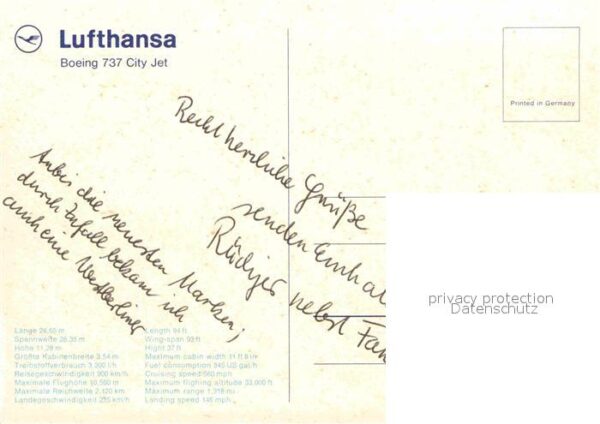 Lufthansa
Boeing 737 City Jet
Printed in Germany
Recht herzliche Grüße
senden Euch
Rüdiger nebst Fam
Anbei die neuesten Marken;
durch Zufall bekam ich
auch eine Westberliner
privacy protection
Datenschutz
Länge 28,65 m
Spannweite 28,35 m
Höhe 11,28 m
Größte Kabinenbreite 3,54 m
Treibstoffverbrauch 3.200 l/h
Reisegeschwindigkeit 900 km/h
Maximale Flughöhe 10,500 m
Maximale Reichweite 2.120 km
Landegeschwindigkeit 235 km/h
Length 94 ft
Wing-span 93 ft
Hight 37 ft
Maximum cabin width 11 ft 8 in
Fuel consumption 845 US gal/h
Cruising speed 560 mph
Maximum flighing altitude 33,000 ft
Maximum range 1,318 mi
Landing speed 146 mph